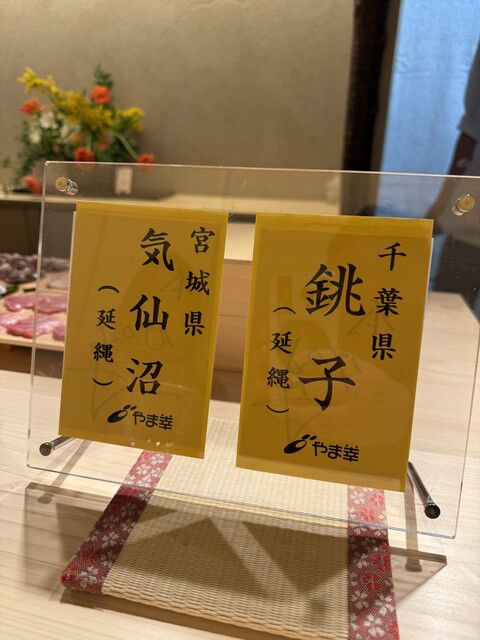 千葉県
銚子
(延縄)
やま幸
宮城県
気仙沼
(延縄)
やま幸